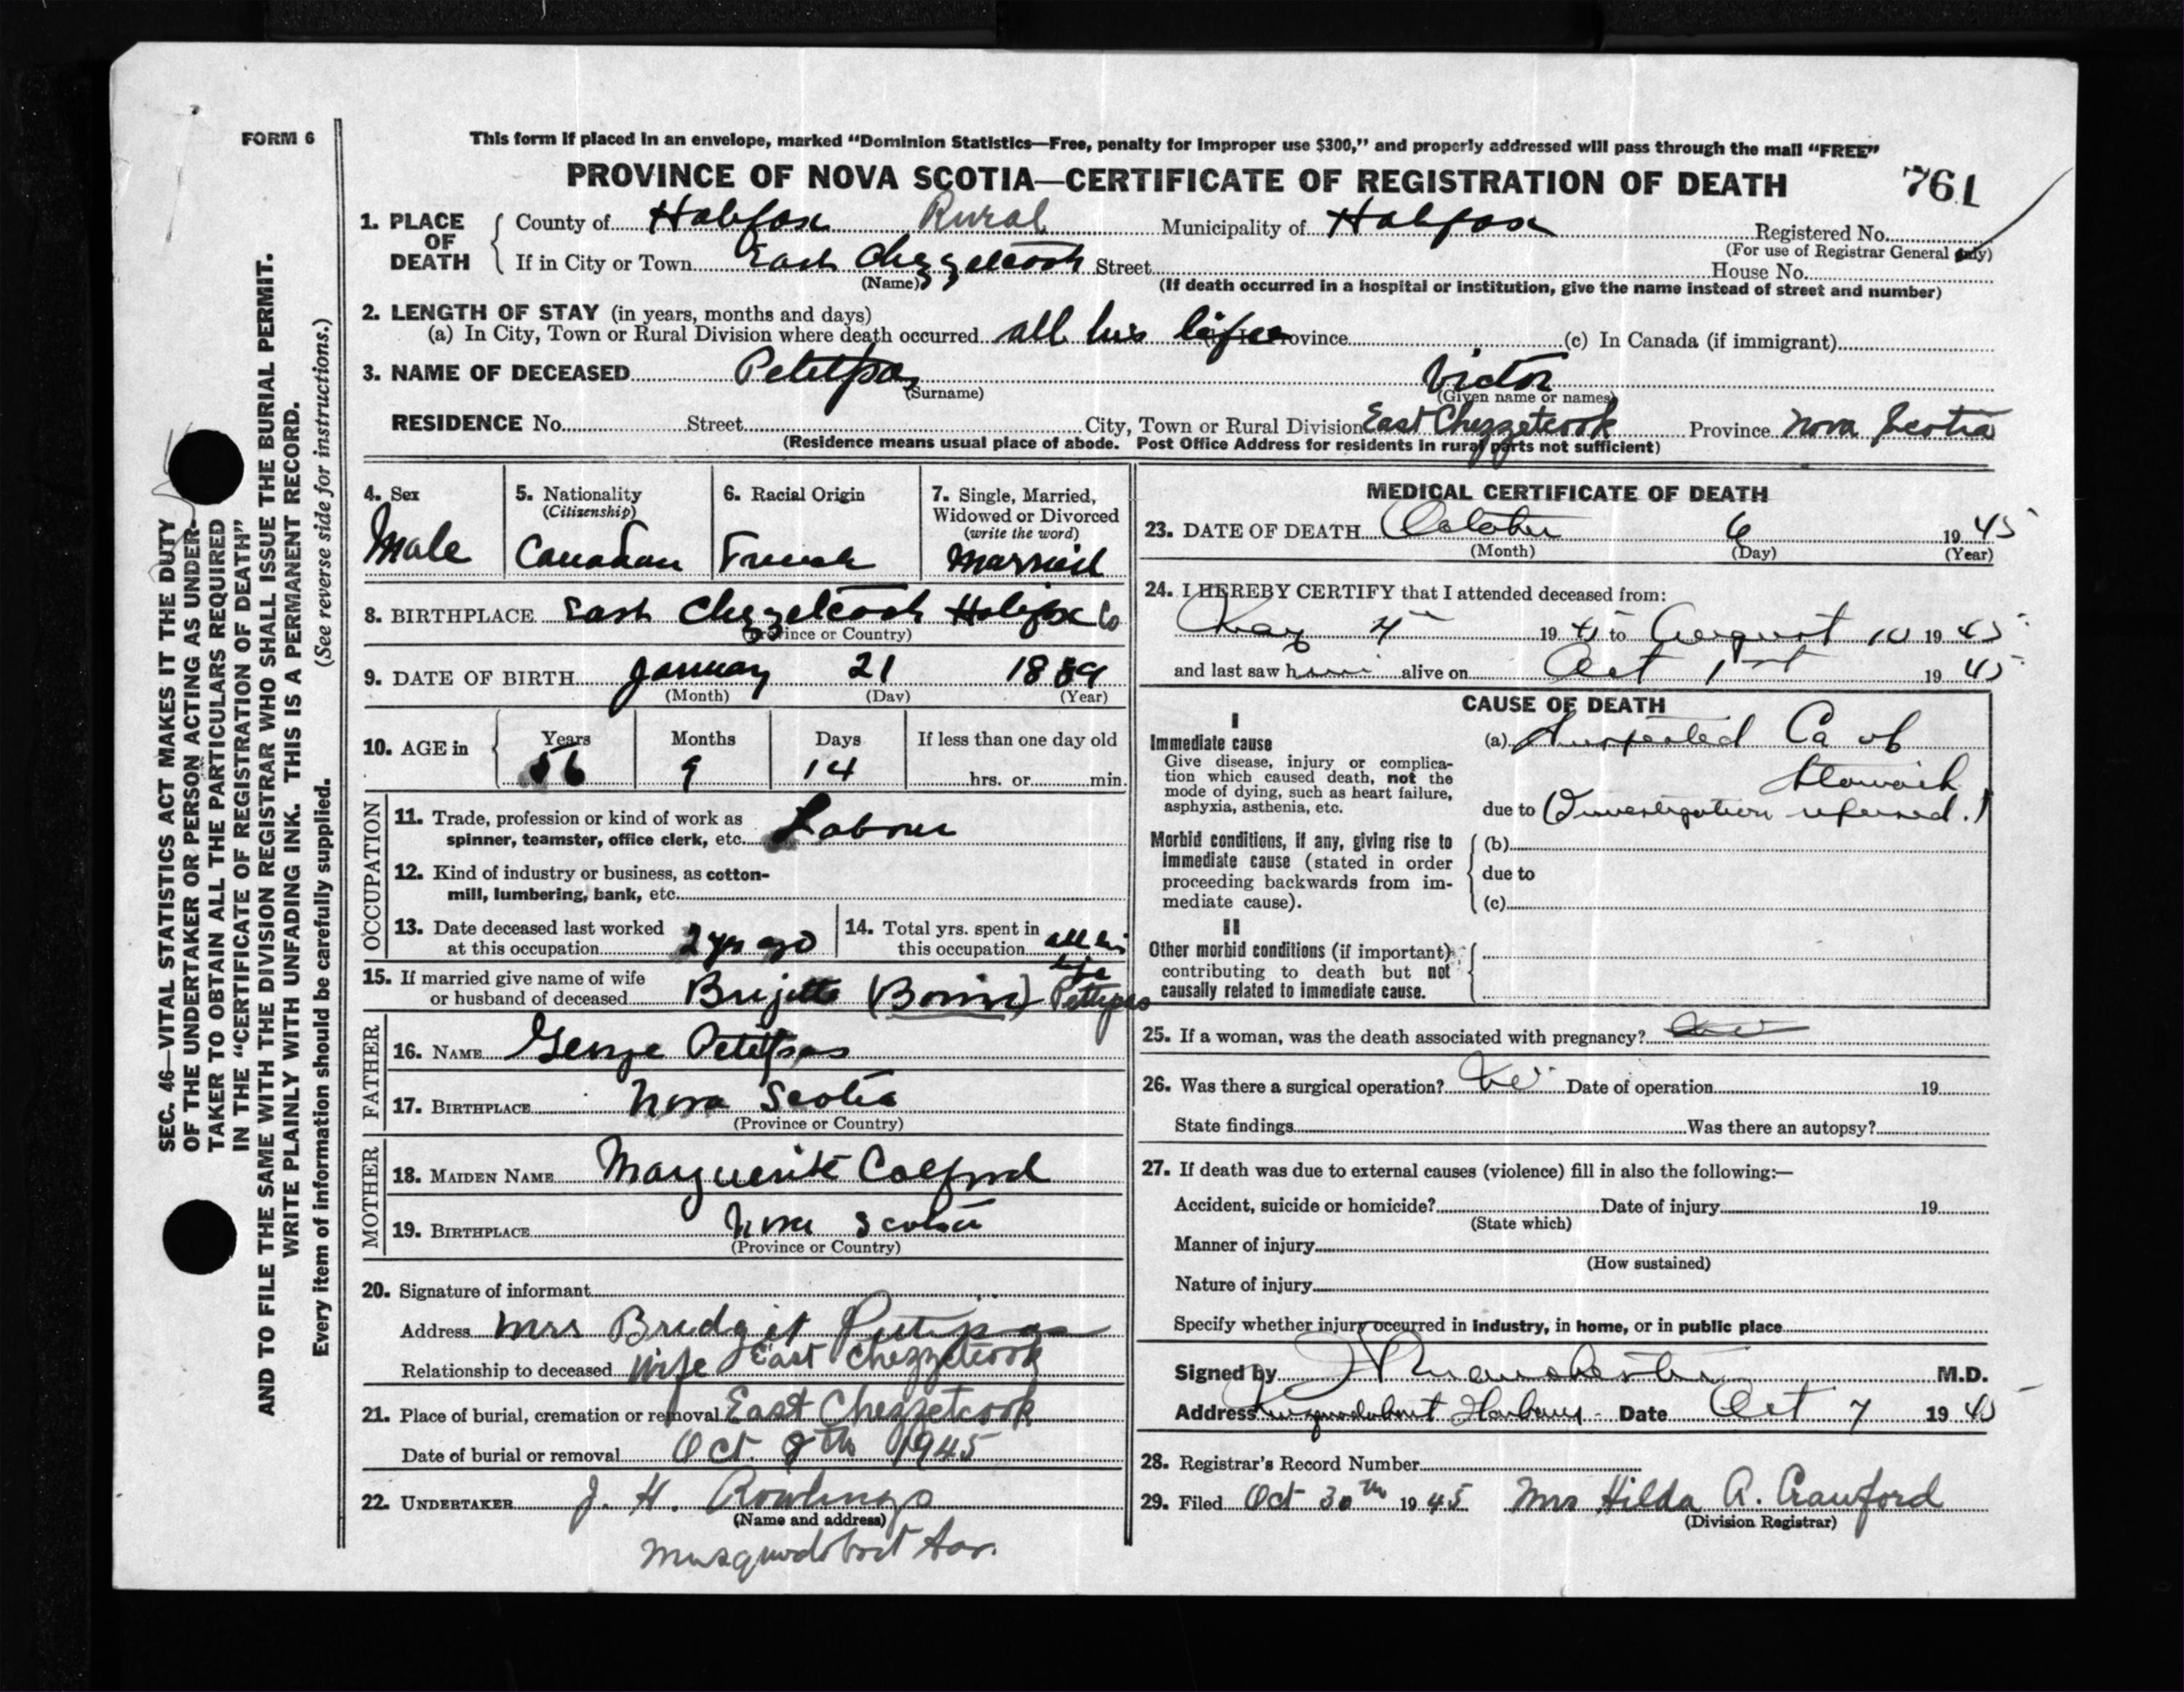 FORM 6
This form if placed in an envelope, marked "Dominion Statistics—Free, penalty for improper use $300," and properly addressed will pass through the mail "FREE"
PROVINCE OF NOVA SCOTIA—CERTIFICATE OF REGISTRATION OF DEATH
761
1. PLACE OF DEATH
County of Halifax Rural Municipality of Halifax Registered No.
(For use of Registrar General only)
If in City or Town East Chezzetcook Street House No.
(Name) (If death occurred in a hospital or institution, give the name instead of street and number)
2. LENGTH OF STAY (in years, months and days)
(a) In City, Town or Rural Division where death occurred all his life Province (c) In Canada (if immigrant)
3. NAME OF DECEASED Petitpas Victor
(Surname) (Given name or names)
RESIDENCE No. Street City, Town or Rural Division East Chezzetcook Province Nova Scotia
(Residence means usual place of abode. Post Office Address for residents in rural parts not sufficient)
4. Sex
Male
5. Nationality
(Citizenship)
Canadian
6. Racial Origin
French
7. Single, Married,
Widowed or Divorced
(write the word)
Married
8. BIRTHPLACE East Chezzetcook Halifax Co
(Province or Country)
9. DATE OF BIRTH January 21 1889
(Month) (Day) (Year)
10. AGE in
Years Months Days If less than one day old
56 9 14 hrs. or min.
OCCUPATION
11. Trade, profession or kind of work as
spinner, teamster, office clerk, etc. Labour
12. Kind of industry or business, as cotton-
mill, lumbering, bank, etc.
13. Date deceased last worked
at this occupation 2 yrs ago
14. Total yrs. spent in
this occupation all his
life
15. If married give name of wife
or husband of deceased Brigitte (Bonin) Pettipas
FATHER
16. NAME George Petitpas
17. BIRTHPLACE Nova Scotia
(Province or Country)
MOTHER
18. MAIDEN NAME Marguerite Colford
19. BIRTHPLACE Nova Scotia
(Province or Country)
20. Signature of informant
Address Mrs Bridgit Petitpas
Relationship to deceased Wife East Chezzetcook
21. Place of burial, cremation or removal East Chezzetcook
Date of burial or removal Oct. 8th 1945
22. UNDERTAKER J. H. Rowlings
(Name and address)
Musquodoboit Har.
MEDICAL CERTIFICATE OF DEATH
23. DATE OF DEATH October 6 1945
(Month) (Day) (Year)
24. I HEREBY CERTIFY that I attended deceased from:
May 4th 1945 to August 10 1945
and last saw him alive on Oct 1st 1945
CAUSE OF DEATH
I
Immediate cause
Give disease, injury or complica-
tion which caused death, not the
mode of dying, such as heart failure,
asphyxia, asthenia, etc.
(a) Suspected Ca of
Stomach
due to (Investigation refused.)
Morbid conditions, if any, giving rise to
immediate cause (stated in order
proceeding backwards from im-
mediate cause).
(b)
due to
(c)
II
Other morbid conditions (if important)
contributing to death but not
causally related to immediate cause.
25. If a woman, was the death associated with pregnancy?
26. Was there a surgical operation? No Date of operation 19
State findings Was there an autopsy?
27. If death was due to external causes (violence) fill in also the following:—
Accident, suicide or homicide? Date of injury 19
(State which)
Manner of injury
(How sustained)
Nature of injury
Specify whether injury occurred in industry, in home, or in public place
Signed by M.D.
Address Musquodoboit Harbour Date Oct 7 1945
28. Registrar's Record Number
29. Filed Oct 30th 1945 Mrs Hilda A. Crawford
(Division Registrar)
SEC. 46—VITAL STATISTICS ACT MAKES IT THE DUTY
OF THE UNDERTAKER OR PERSON ACTING AS UNDER-
TAKER TO OBTAIN ALL THE PARTICULARS REQUIRED
IN THE "CERTIFICATE OF REGISTRATION OF DEATH"
AND TO FILE THE SAME WITH THE DIVISION REGISTRAR WHO SHALL ISSUE THE BURIAL PERMIT.
WRITE PLAINLY WITH UNFADING INK. THIS IS A PERMANENT RECORD.
Every item of information should be carefully supplied. (See reverse side for instructions.)